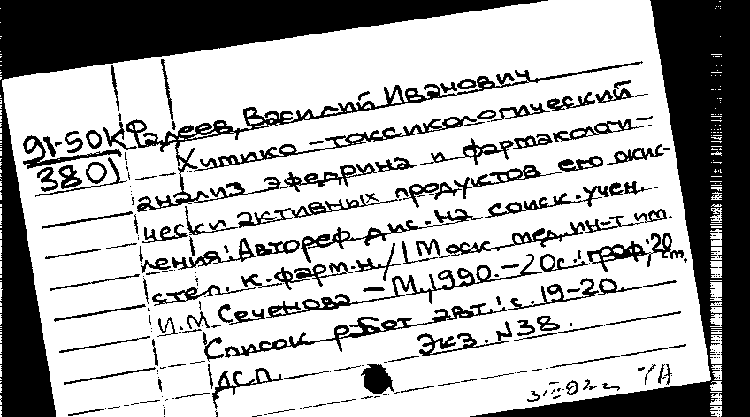 91-50К
3801
Фадеев, Василий Иванович.
Химико-токсикологический
анализ эфедрина и фармакологи-
чески активных продуктов его окис-
ления: Автореф. дис. на соиск. учен.
степ. к. фарм. н. / 1 Моск. мед. ин-т им.
И.М. Сеченова. - М., 1990. - 20 с.: граф.; 20 см.
Список работ авт.: с. 19-20.
ДСП. Экз. N38.
ТА